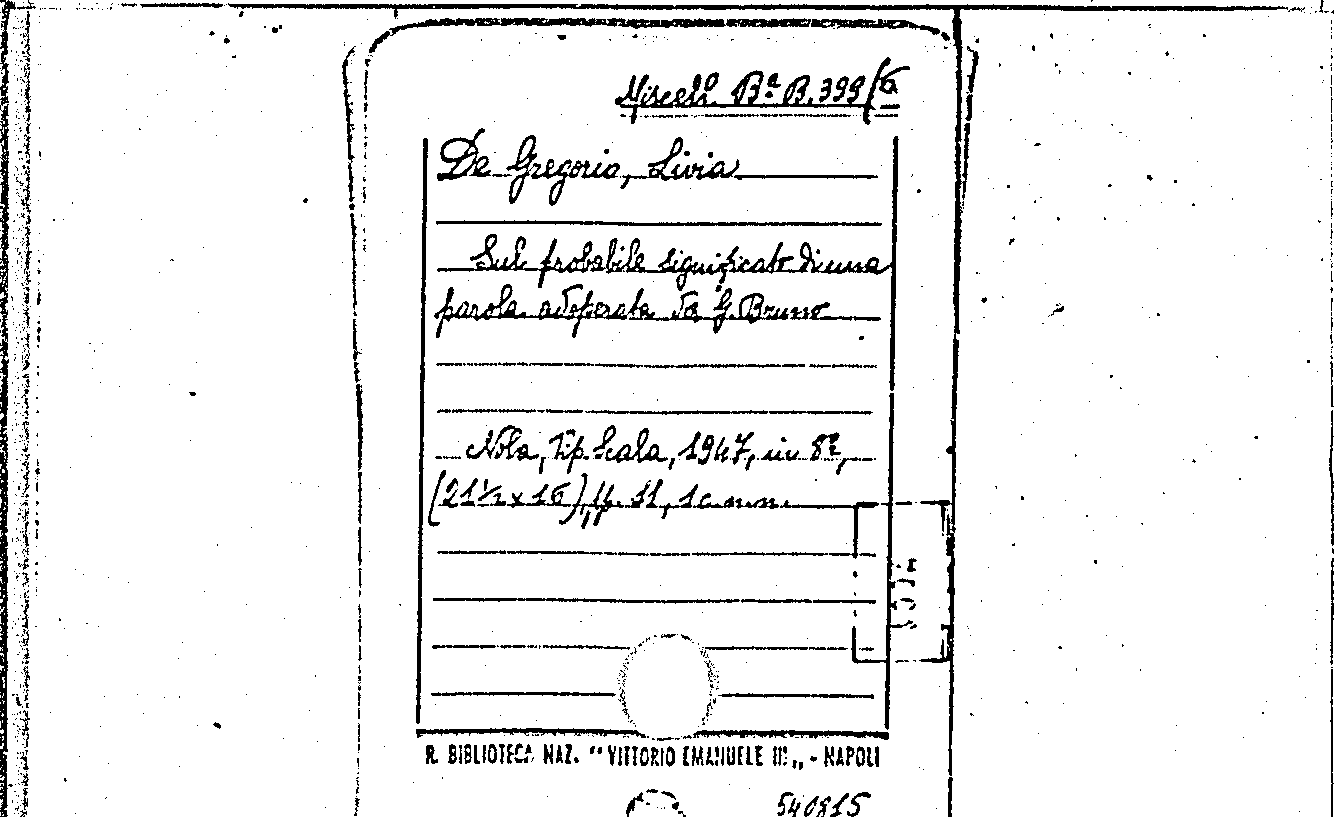 Miscell. Bª B. 399/6
De Gregorio, Livia
Sul probabile significato di una
parola adoperata da G. Bruno
Nola, Tip. Scala, 1947, in 8º,
(21½ x 16), pp. 11, 1 c. n.n.
R. BIBLIOTECA NAZ. “VITTORIO EMANUELE III„ - NAPOLI
540815